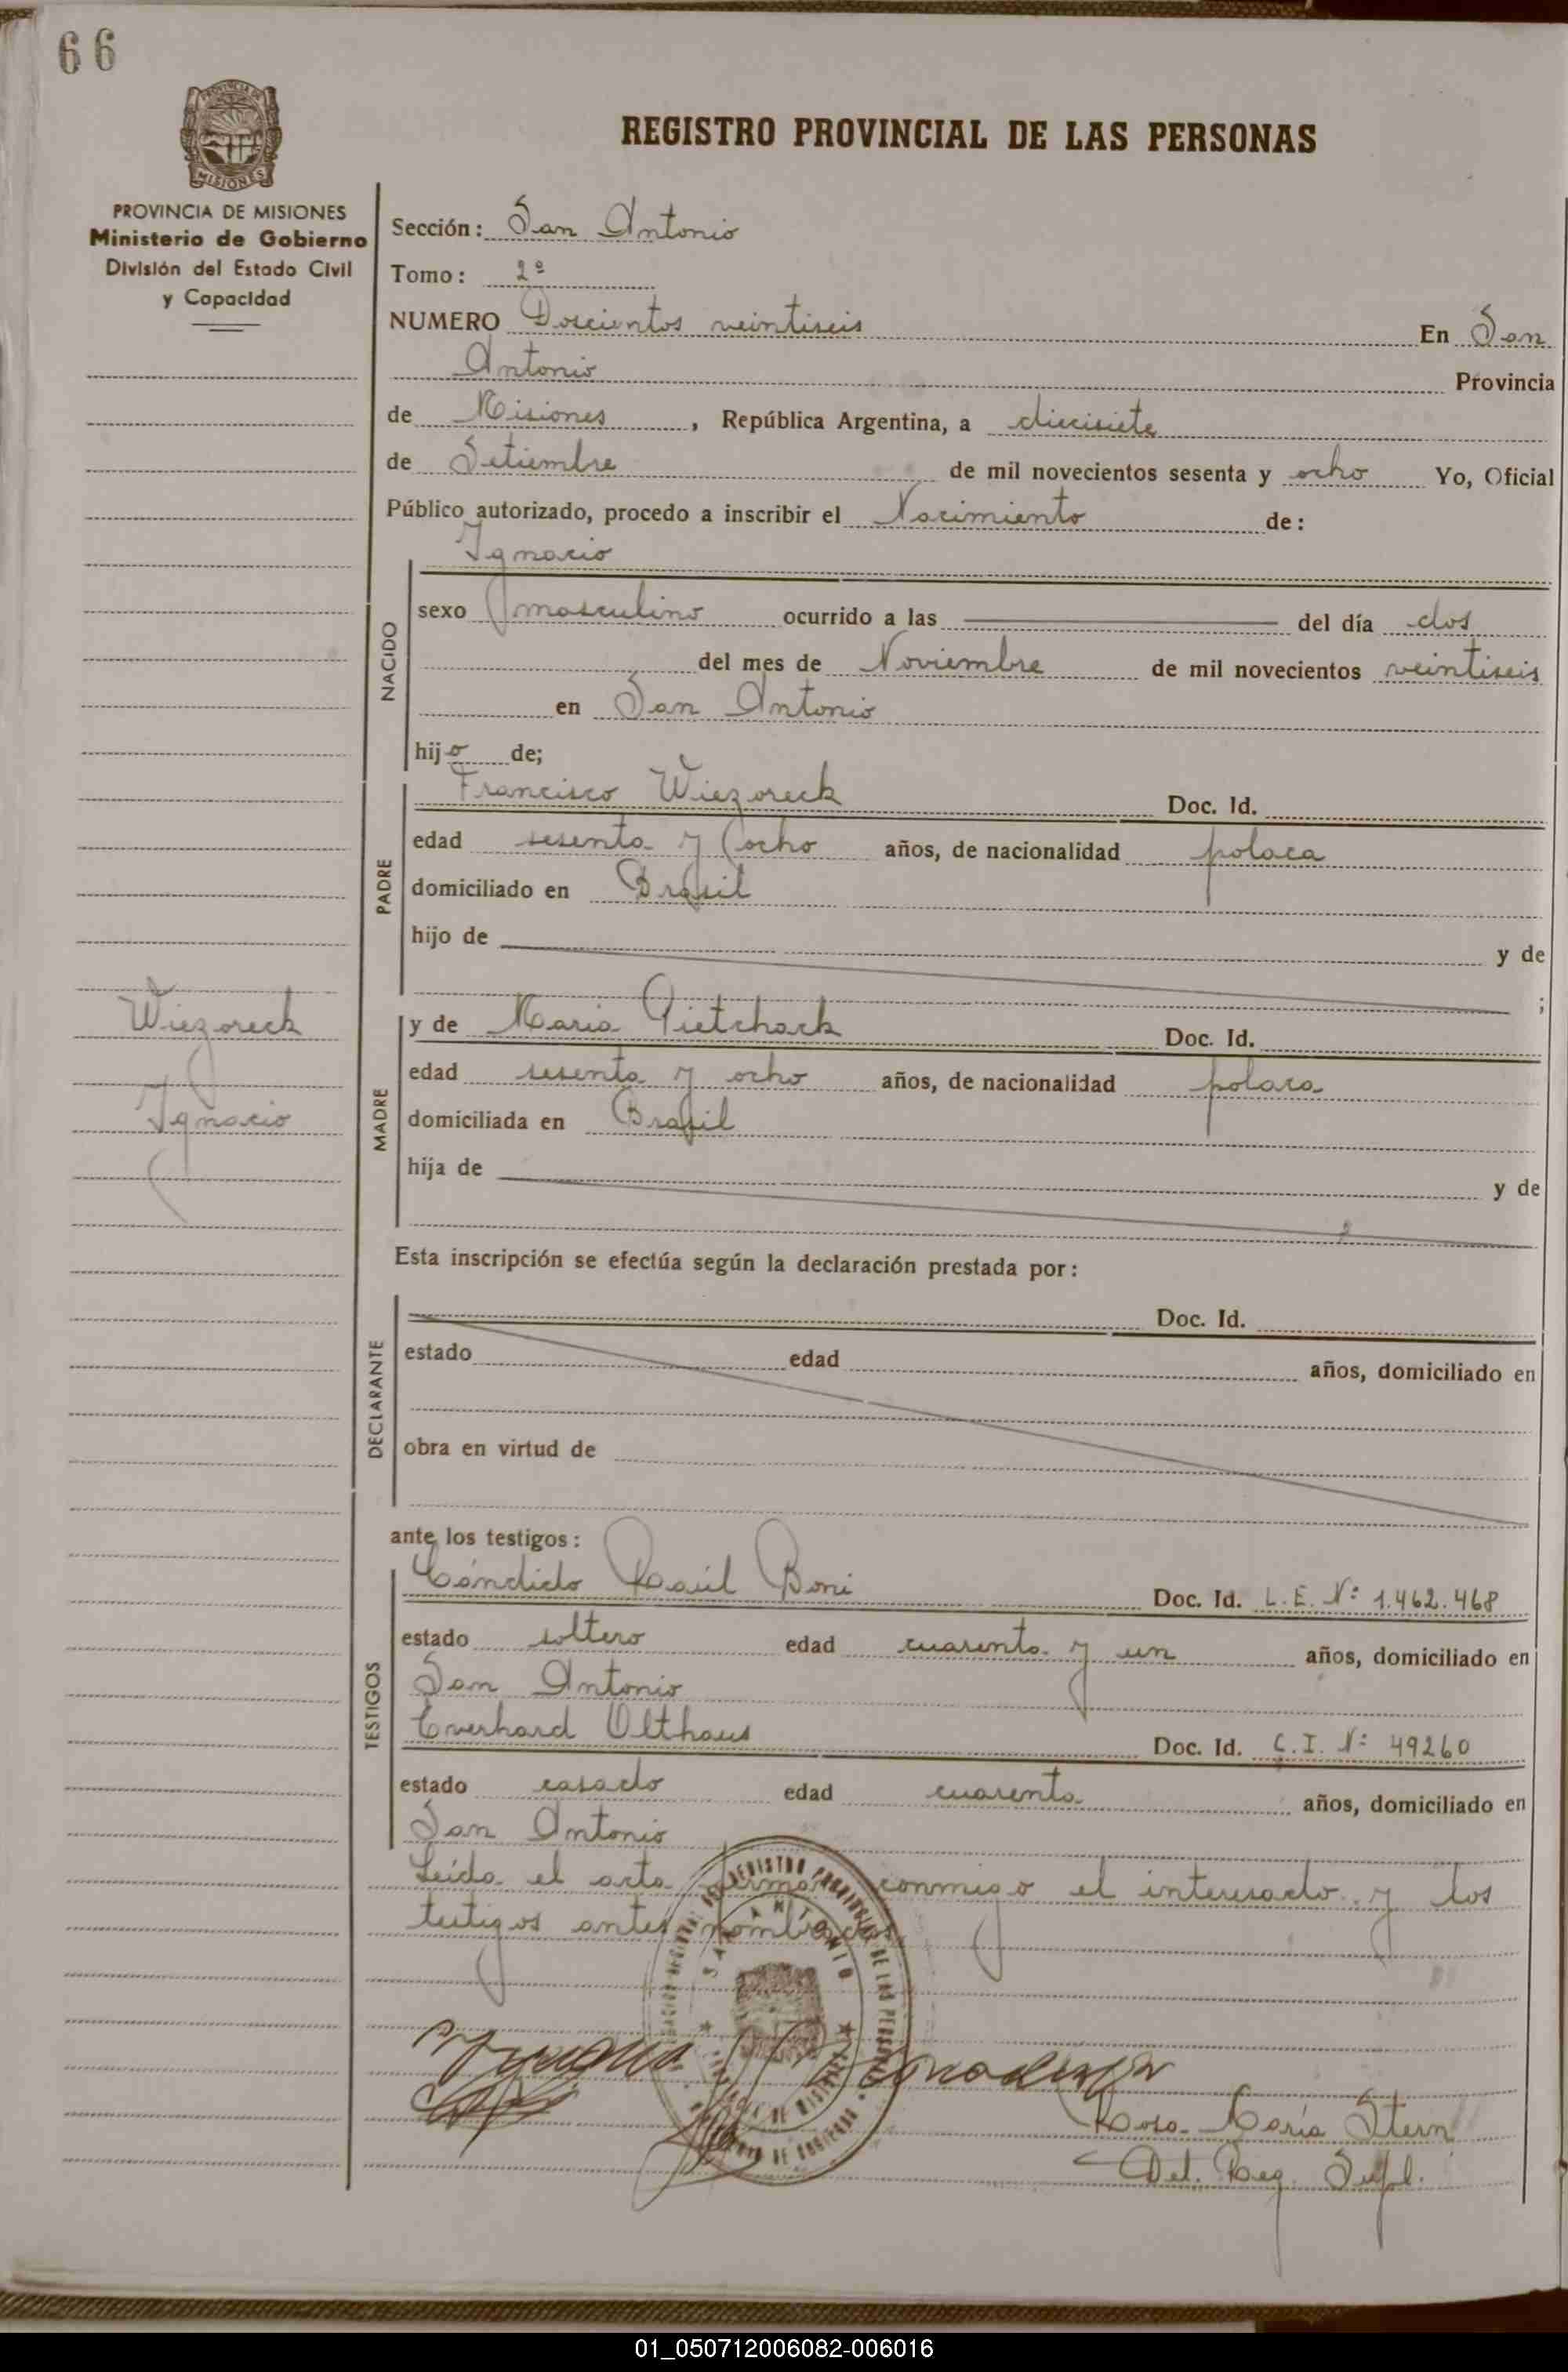 66
PROVINCIA DE
MISIONES
REGISTRO PROVINCIAL DE LAS PERSONAS
PROVINCIA DE MISIONES
Ministerio de Gobierno
División del Estado Civil
y Capacidad
Sección: San Antonio
Tomo: 2º
NUMERO Doscientos veintiseis En San
Antonio Provincia
de Misiones, República Argentina, a diecisiete
de Setiembre de mil novecientos sesenta y ocho Yo, Oficial
Público autorizado, procedo a inscribir el Nacimiento de:
Ignacio
NACIDO
sexo masculino ocurrido a las del día dos
del mes de Noviembre de mil novecientos veintiseis
en San Antonio
hijo de;
PADRE
Francisco Wiezoreck Doc. Id.
edad sesenta y ocho años, de nacionalidad polaca
domiciliado en Brasil
hijo de y de
;
Wiezoreck
Ignacio
MADRE
y de Maria Pietchack Doc. Id.
edad sesenta y ocho años, de nacionalidad polaca
domiciliada en Brasil
hija de y de
Esta inscripción se efectúa según la declaración prestada por:
DECLARANTE
Doc. Id.
estado edad años, domiciliado en
obra en virtud de
ante los testigos:
TESTIGOS
Cándido Raúl Boni Doc. Id. L.E. Nº 1.462.468
estado soltero edad cuarenta y un años, domiciliado en
San Antonio
Everhard Olthaus Doc. Id. C.I. Nº 49260
estado casado edad cuarenta años, domiciliado en
San Antonio
Leída el acta firman conmigo el interesado y los
testigos antes nombrados
SAN ANTONIO
Rosa María Stern
Del. Reg. Supl.
01_050712006082-006016